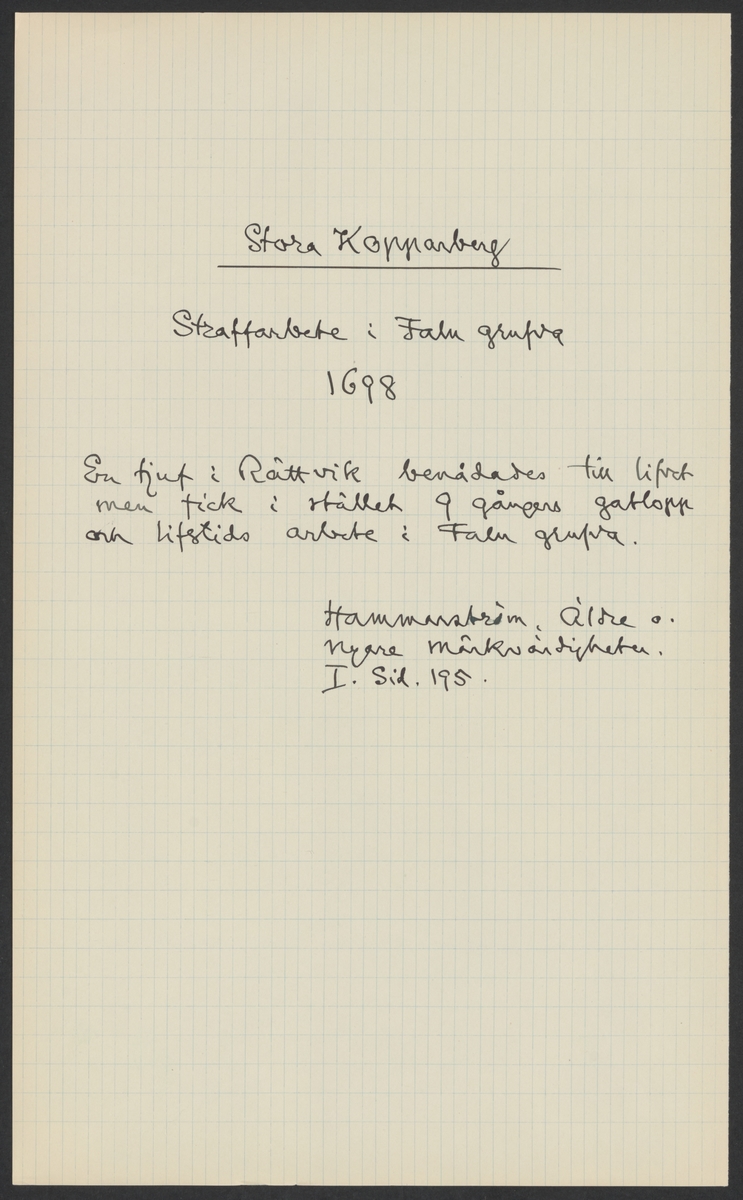 Stora Kopparberg
Straffarbete i Falu grufva
1698
En tjuf i Rättvik benådades till lifvet
men fick i stället 9 gångers gatlopp
och lifstids arbete i Falu grufva.
Hammarström, Äldre o.
nyare märkvärdigheter.
I. Sid. 195.